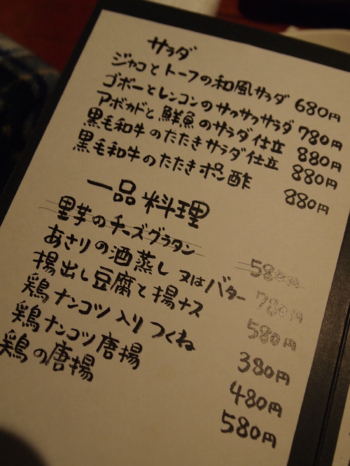 サラダ
ジャコとトーフの和風サラダ 680円
ゴボーとレンコンのサクサクサラダ 780円
アボカドと鮮魚のサラダ仕立 880円
黒毛和牛のたたきサラダ仕立 880円
黒毛和牛のたたきポン酢 880円
一品料理
里芋のチーズグラタン 580円
あさりの酒蒸し 又はバター 780円
揚出し豆腐と揚ナス 580円
鶏ナンコツ入りつくね 380円
鶏ナンコツ唐揚 480円
鶏の唐揚 580円